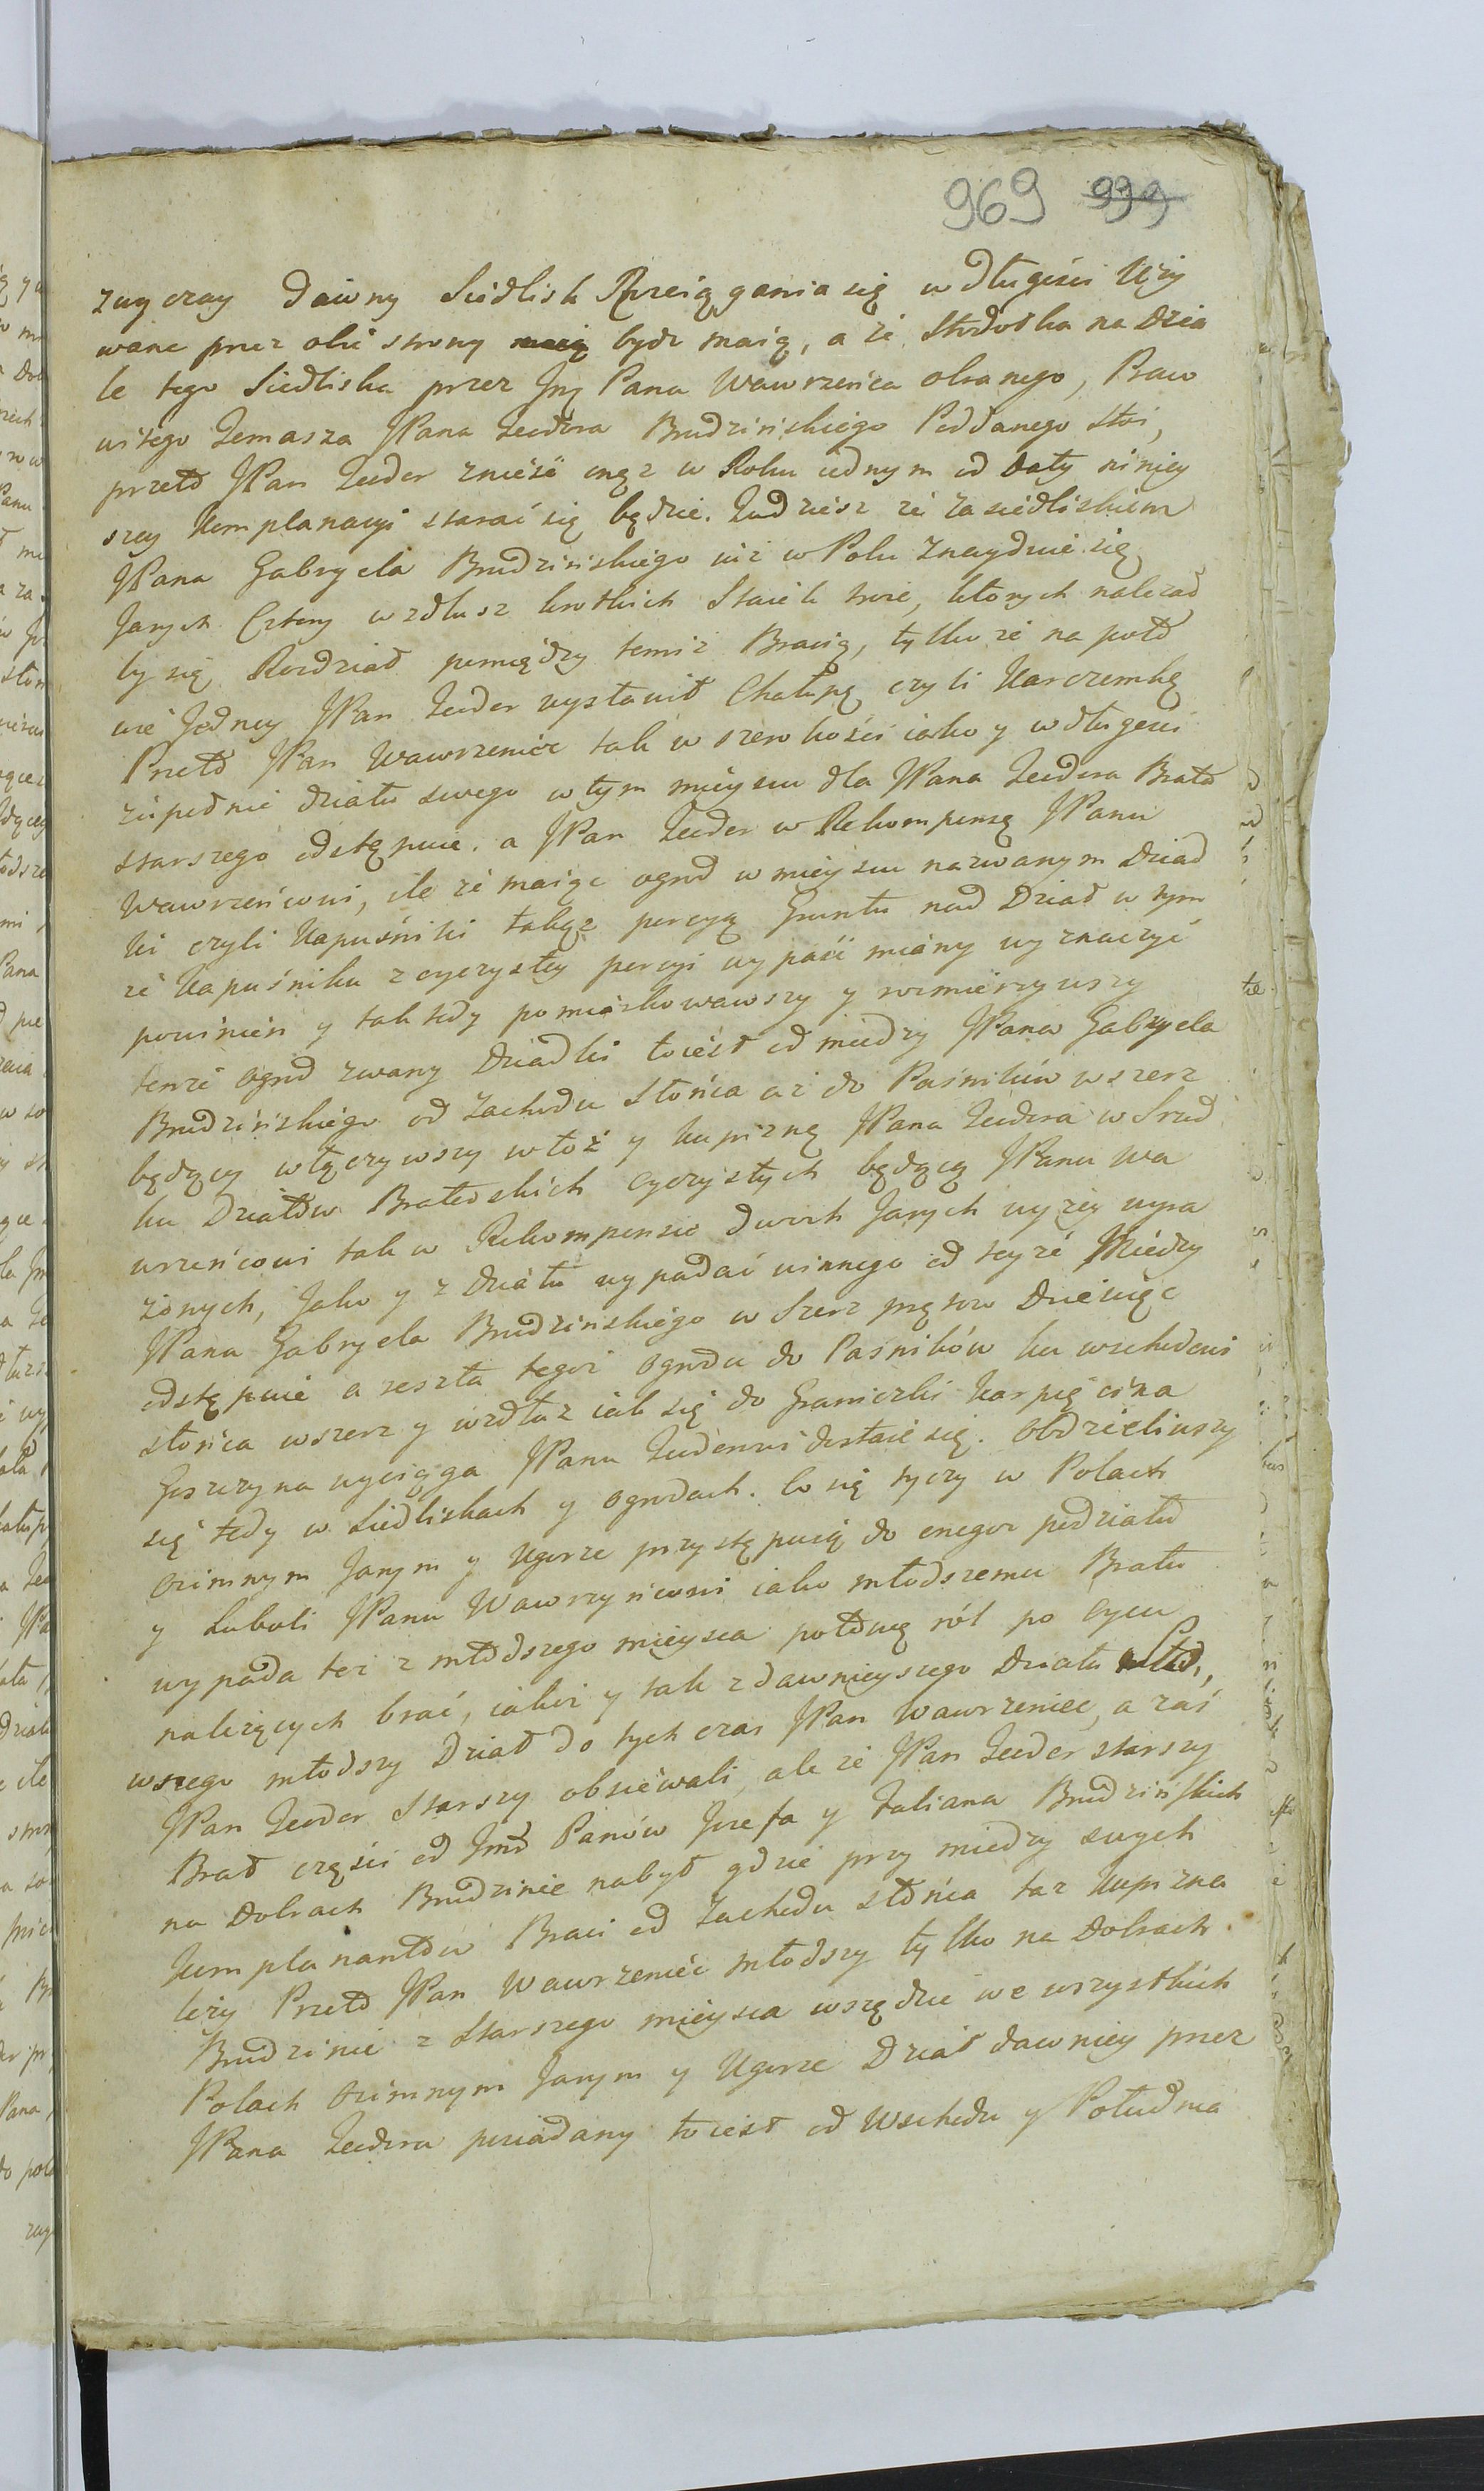 969 999
zwyczay dawny Siedlisk Rozciągania się w długości Uży
wane przez obie strony maią bydz maią, a że Stodołka na Dzia
le tego Siedliska przez Jmć Pana Wawrzeńca obranego, Praw
witego Tomasza JPana Teodora Brudzińskiego Poddanego stoi,
przeto JPan Teodor znieść onęż w Roku iednym od Daty niniey
szey Komplanacyi starać się będzie. Tudziesz że za siedliskiem
JPana Gabryela Brudzińskiego iuż w Polu znayduie się
Jarych Cztery wzdłusz krotkich Staiek troie, ktorych należał
by się Rozdział pomiędzy temiż Bracią, tylko że na poło
wie Jedney JPan Teodor wystawił Chałupę czyli Karczemkę
Przeto JPan Wawrzeniec tak w szerokości iako y w długości
zupełnie działu swego w tym mieyscu dla JPana Teodora Brata
starszego odstępuie. a JPan Teodor w Rekompensę JPanu
Wawrzeńcowi, ile że maiąc ogrod w mieyscu nazwanym Dziad
ki czyli Kapuśniki takąż porcyą Gruntu nad Dział w tym
że Kapuśniku z oyczystey porcyi wypaść miany wyznaczyć
powinien y tak tedy pomiarkowawszy y rozmierzywszy
tenże ogrod zwany Dziadki toiest od miedzy JPana Gabryela
Brudzińskiego od zachodu Słońca aż do Paśników wszerz
będący włączywszy w toż y kupiznę JPana Teodora w Srod
ku Działów Braterskich oyczystych będącą JPanu Wa
wrzeńcowi tak w Rekompensie dwoch Jarych wyżey wyra
żonych, Jako y z działu wypadać winnego od teyże Miedzy
JPana Gabryela Brudzińskiego w Szerz prętow Dziewięć
odstępuie a reszta tegoż ogrodu do Paśników ku wschodowi
słońca wszerz y wzdłuż iak się do Graniczki Karpięcina
Goszczyna wyciąga JPanu Teodorowi dostaie się. Obdzieliwszy
się tedy w Siedliskach y ogrodach. Co się tyczy w Polach
ozimnym Jarym y Ugorze przystępuią do onegoż podziału
y lubo li JPanu Wawrzyńcowi iako młodszemu Bratu
wypada też z młodszego mieysca połowę ról po Oycu
należących brać, iakoż y tak z dawnieyszego Działu
wszego młodszy Dział do tych czas JPan Wawrzeniec, a zaś
JPan Teodor Starszy obsiewali, ale że JPan Teodor starszy
Brat części od Jmć Panów Jozefa y Juliana Brudzińskich
na Dobrach Brudzinie nabył gdzie przy miedzy swych
Komplanantów Braci od Zachodu słońca taż Kupizna
leży Przeto JPan Wawrzeniec młodszy tylko na Dobrach
Brudzinie z Starszego mieysca wszędzie we wszystkich
Polach ozimnym Jarym y Ugorze Dział dawniey przez
JPana Teodora posiadany toiest od Wschodu y Południa